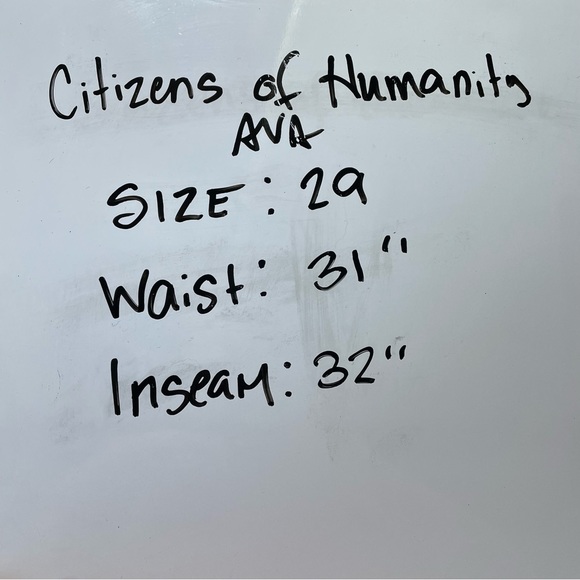 Citizens of Humanity
AVA
SIZE: 29
Waist: 31"
Inseam: 32"